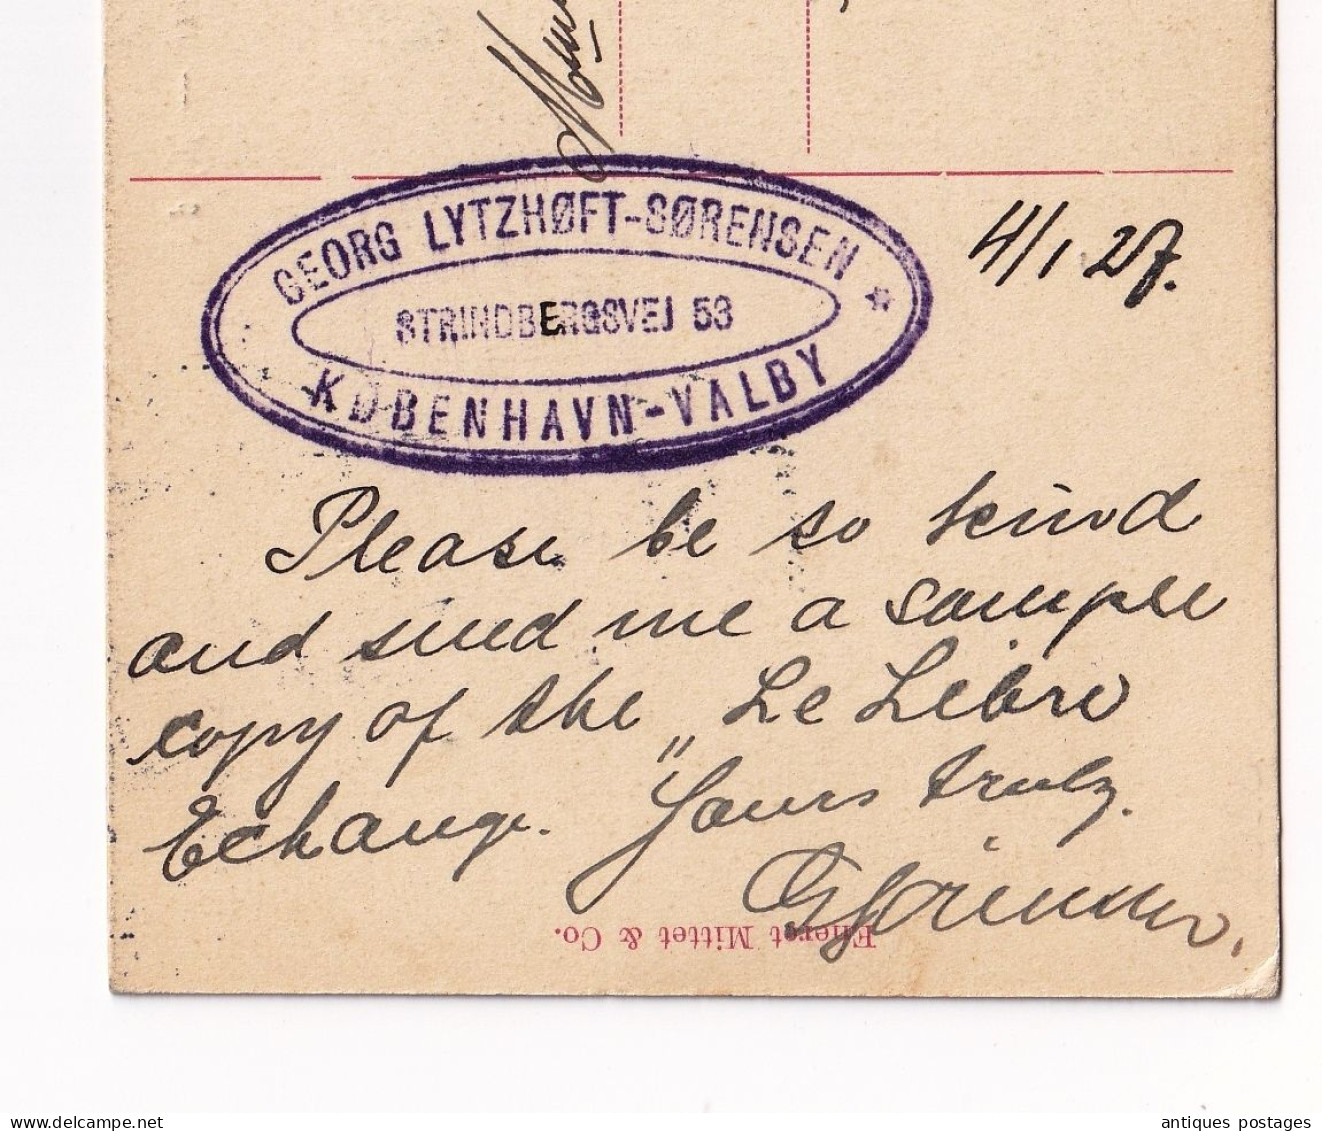 GEORG LYTZHØFT-SØRENSEN *
STRINDBERGSVEJ 53
KØBENHAVN-VALBY
4/1 27.
Please be so kind
and send me a sample
copy of the „Le Libre
Echange." Yours truly.
GSörensen.
Eneret Mittet & Co.
www.delcampe.net
antiques postages